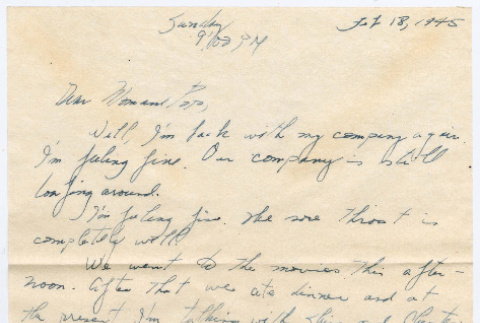 Sunday
9:00 PM
Feb 18, 1945
Dear Mom and Pop,
Well, I'm back with my company again.
I'm feeling fine. Our company is still
loafing around.
I'm feeling fine. The sore throat is
completely well.
We went to the movies this after-
noon. After that we ate dinner and at
the present I'm talking with